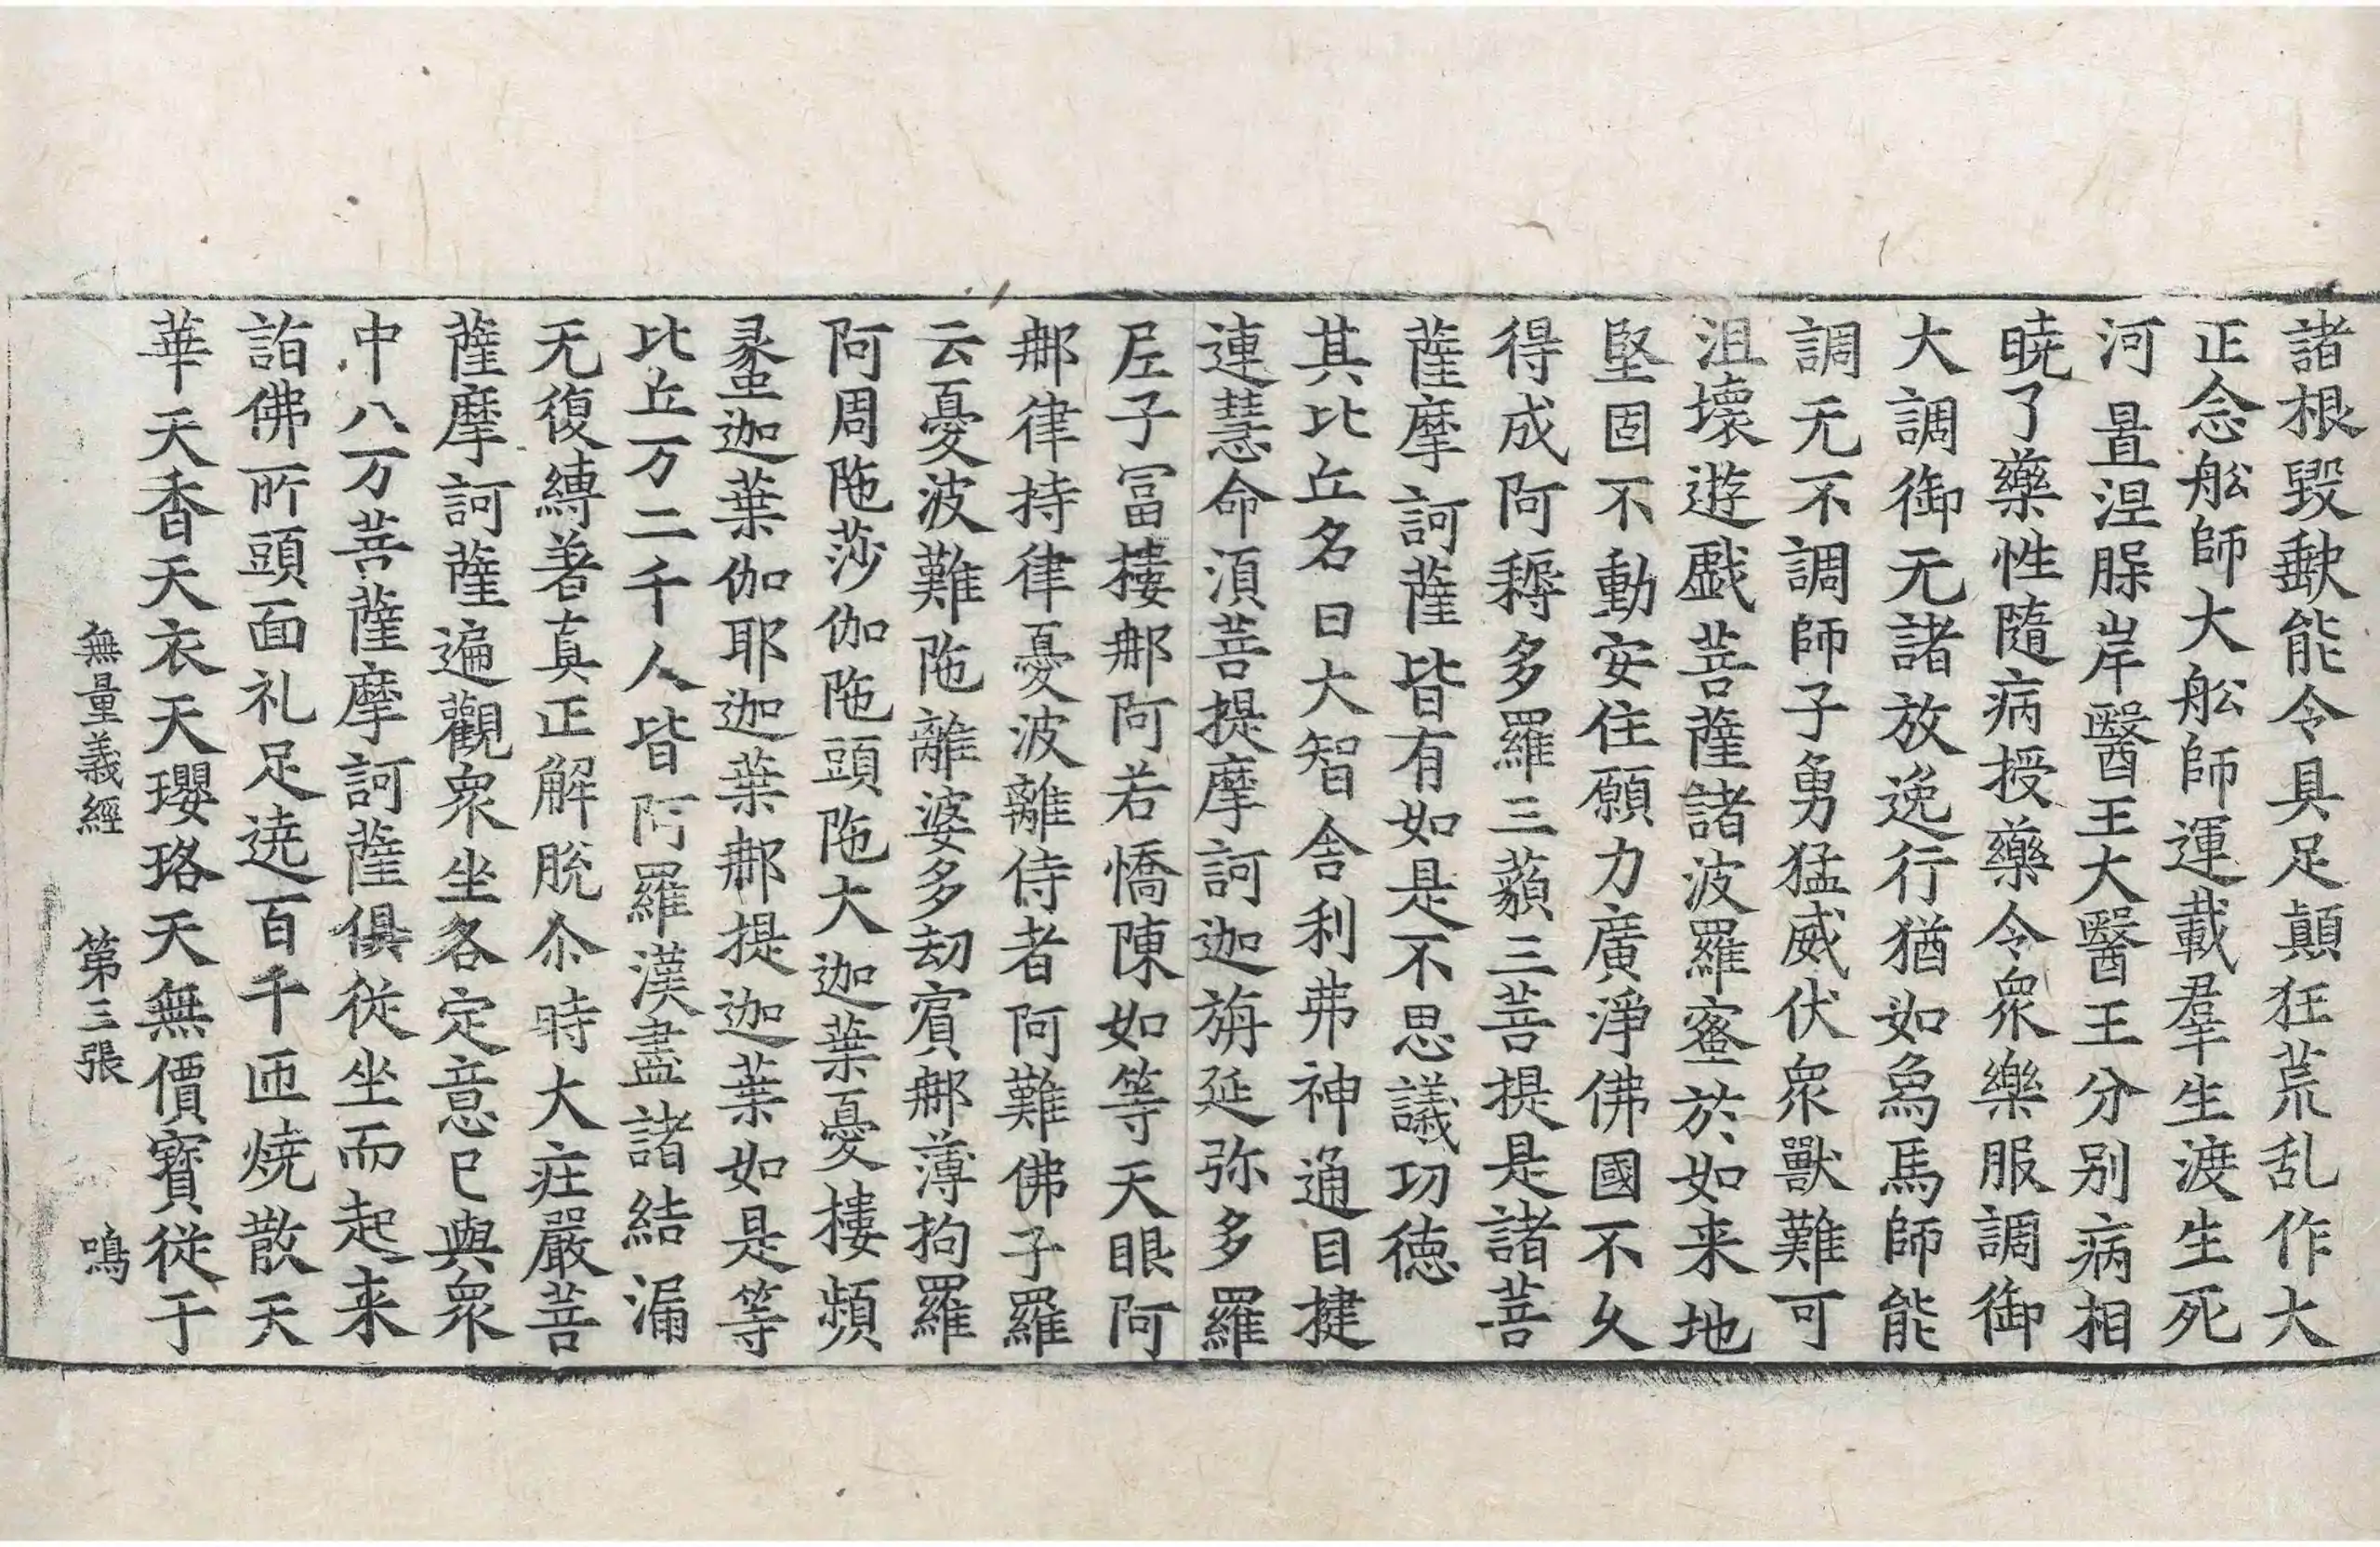 諸根毀壞能令具足顛狂荒乱作大
正念舩師大舩師運載羣生渡生死
河置涅槃岸醫王大醫王分别病相
曉了藥性隨病授藥令衆樂服調御
大調御无諸放逸行猶如象馬師能
調无不調師子勇猛威伏衆獸難可
沮壞遊戱菩薩諸波羅蜜於如来地
堅固不動安住願力廣淨佛國不久
得成阿耨多羅三藐三菩提是諸菩
薩摩訶薩皆有如是不思議功德
其比丘名曰大智舍利弗神通目揵
連慧命湏菩提摩訶迦旃延弥多羅
尼子冨樓那阿若憍陳如等天眼阿
那律持律憂波離侍者阿難佛子羅
云憂波難陁離婆多劫賓那薄拘羅
阿周陁莎伽陁頭陁大迦葉憂樓頻
螺迦葉伽耶迦葉那提迦葉如是等
比丘万二千人皆阿羅漢盡諸結漏
无復縛著真正解脫尒時大莊嚴菩
薩摩訶薩遍觀衆坐各定意已與衆
中八万菩薩摩訶薩俱從坐而起来
詣佛所頭面礼足遶百千匝燒散天
華天香天衣天瓔珞天無價寶從于
無量義經 第三張 鳴